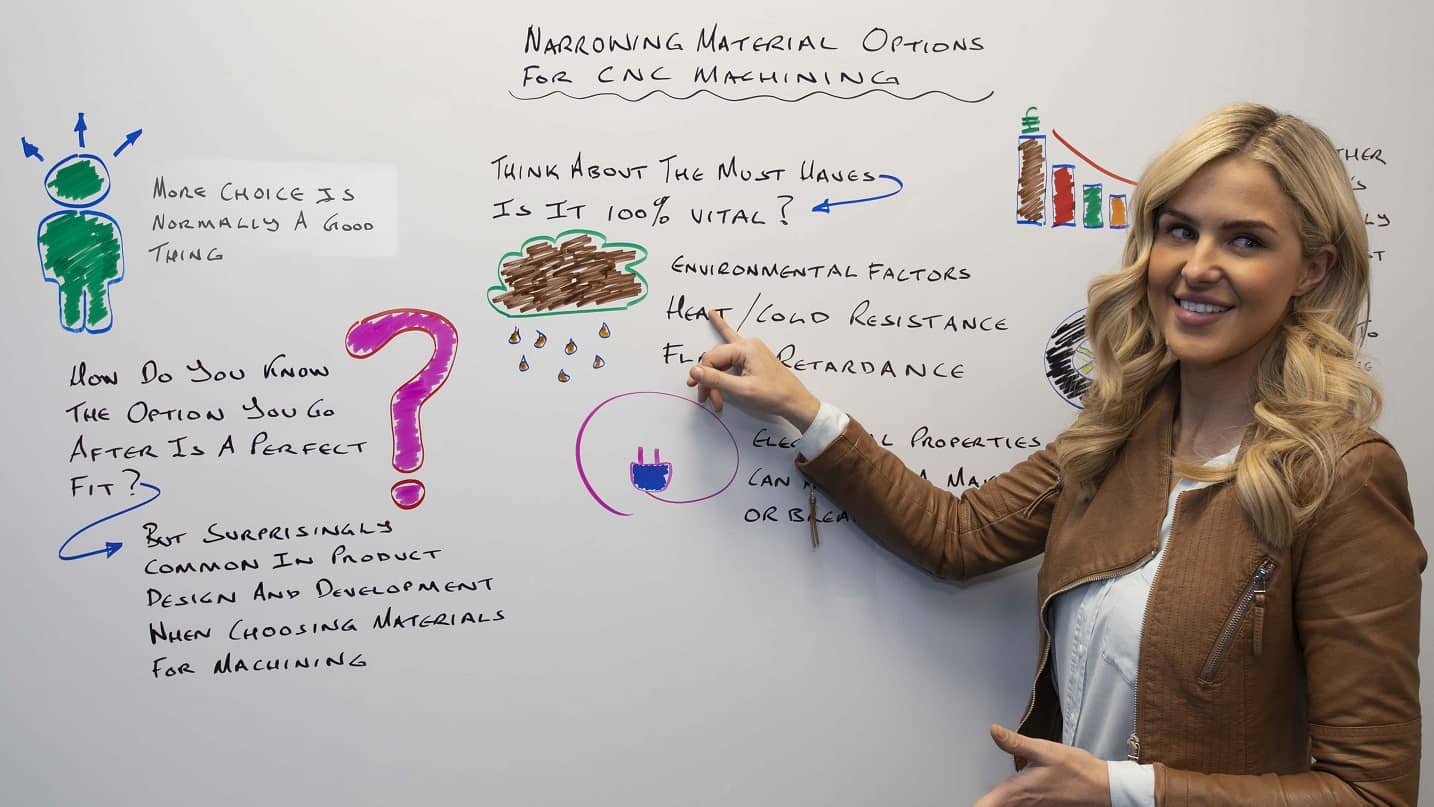 NARROWING MATERIAL OPTIONS
FOR CNC MACHINING
MORE CHOICE IS
NORMALLY A GOOD
THING
HOW DO YOU KNOW
THE OPTION YOU GO
AFTER IS A PERFECT
FIT?
BUT SURPRISINGLY
COMMON IN PRODUCT
DESIGN AND DEVELOPMENT
WHEN CHOOSING MATERIALS
FOR MACHINING
?
THINK ABOUT THE MUST HAVES
IS IT 100% VITAL?
ENVIRONMENTAL FACTORS
HEAT/COLD RESISTANCE
RETARDANCE
PROPERTIES
CAN A
OR
£